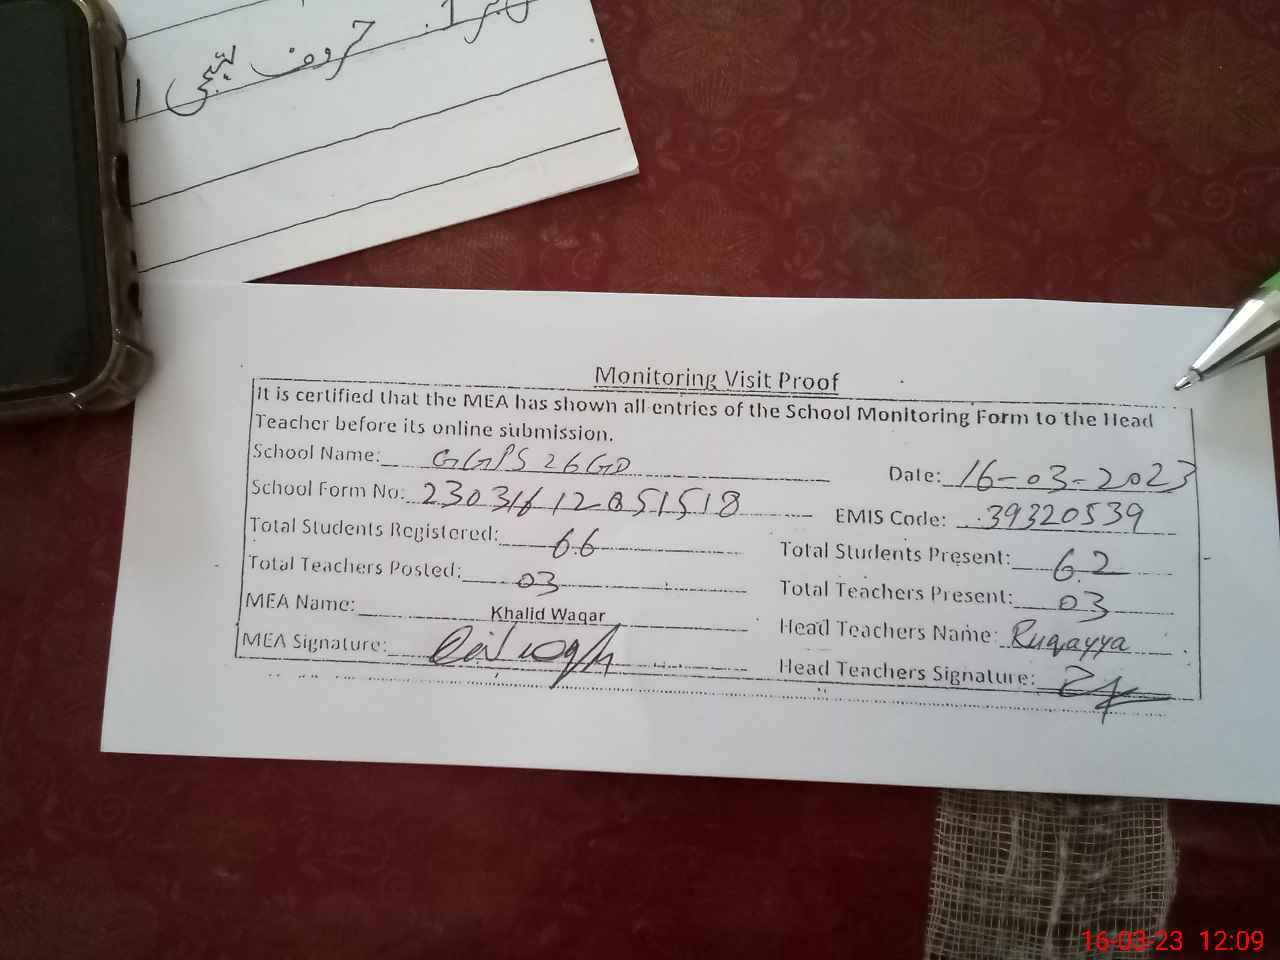 حروف تہجی ا
Monitoring Visit Proof
It is certified that the MEA has shown all entries of the School Monitoring Form to the Head
Teacher before its online submission.
School Name: GGPS 26 GD Date: 16-03-2023
School Form No: 23031612051518 EMIS Code: 39320539
Total Students Registered: 66 Total Students Present: 62
Total Teachers Posted: 03 Total Teachers Present: 03
MEA Name: Khalid Waqar Head Teachers Name: Ruqayya
MEA Signature: Head Teachers Signature:
16-03-23 12:09